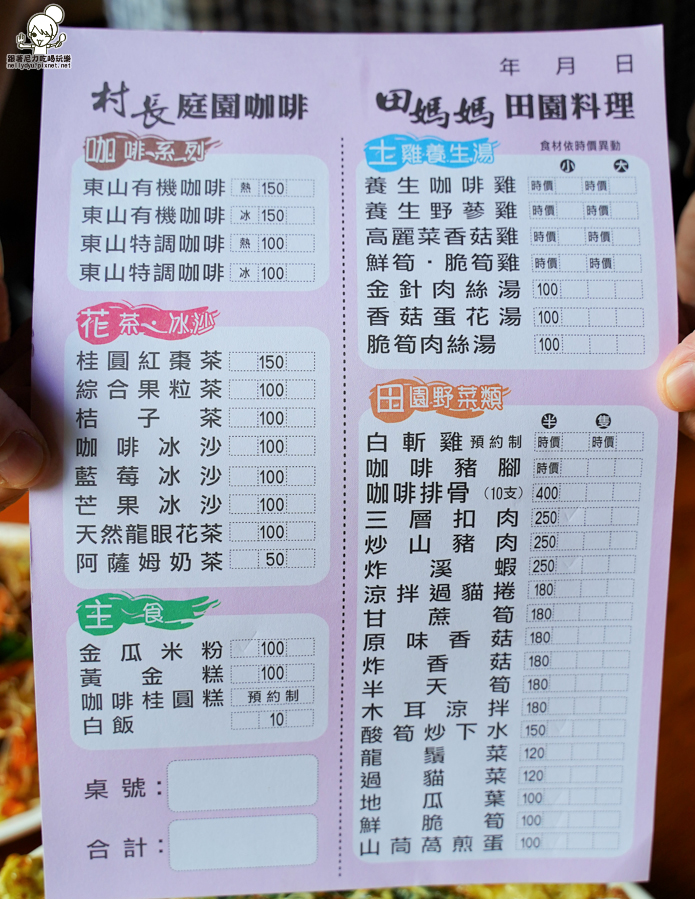 跟著尼力吃喝玩樂
nellydyu.pixnet.net
年 月 日
村長庭園咖啡
咖啡系列
東山有機咖啡 熱 150
東山有機咖啡 冰 150
東山特調咖啡 熱 100
東山特調咖啡 冰 100
花茶·冰沙
桂圓紅棗茶 150
綜合果粒茶 100
桔子茶 100
咖啡冰沙 100
藍莓冰沙 100
芒果冰沙 100
天然龍眼花茶 100
阿薩姆奶茶 50
主食
金瓜米粉 100
黃金糕 100
咖啡桂圓糕 預約制
白飯 10
桌號：
合計：
田媽媽田園料理
土雞養生湯 食材依時價異動
小 大
養生咖啡雞 時價 時價
養生野蔘雞 時價 時價
高麗菜香菇雞 時價 時價
鮮筍·脆筍雞 時價 時價
金針肉絲湯 100
香菇蛋花湯 100
脆筍肉絲湯 100
田園野菜類
半 隻
白斬雞 預約制 時價 時價
咖啡豬腳 時價
咖啡排骨（10支） 400
三層扣肉 250
炒山豬肉 250
炸溪蝦 250
涼拌過貓捲 180
甘蔗筍 180
原味香菇 180
炸香菇 180
半天筍 180
木耳涼拌 180
酸筍炒下水 150
龍鬚菜 120
過貓菜 120
地瓜葉 100
鮮脆筍 100
山茼萵煎蛋 100